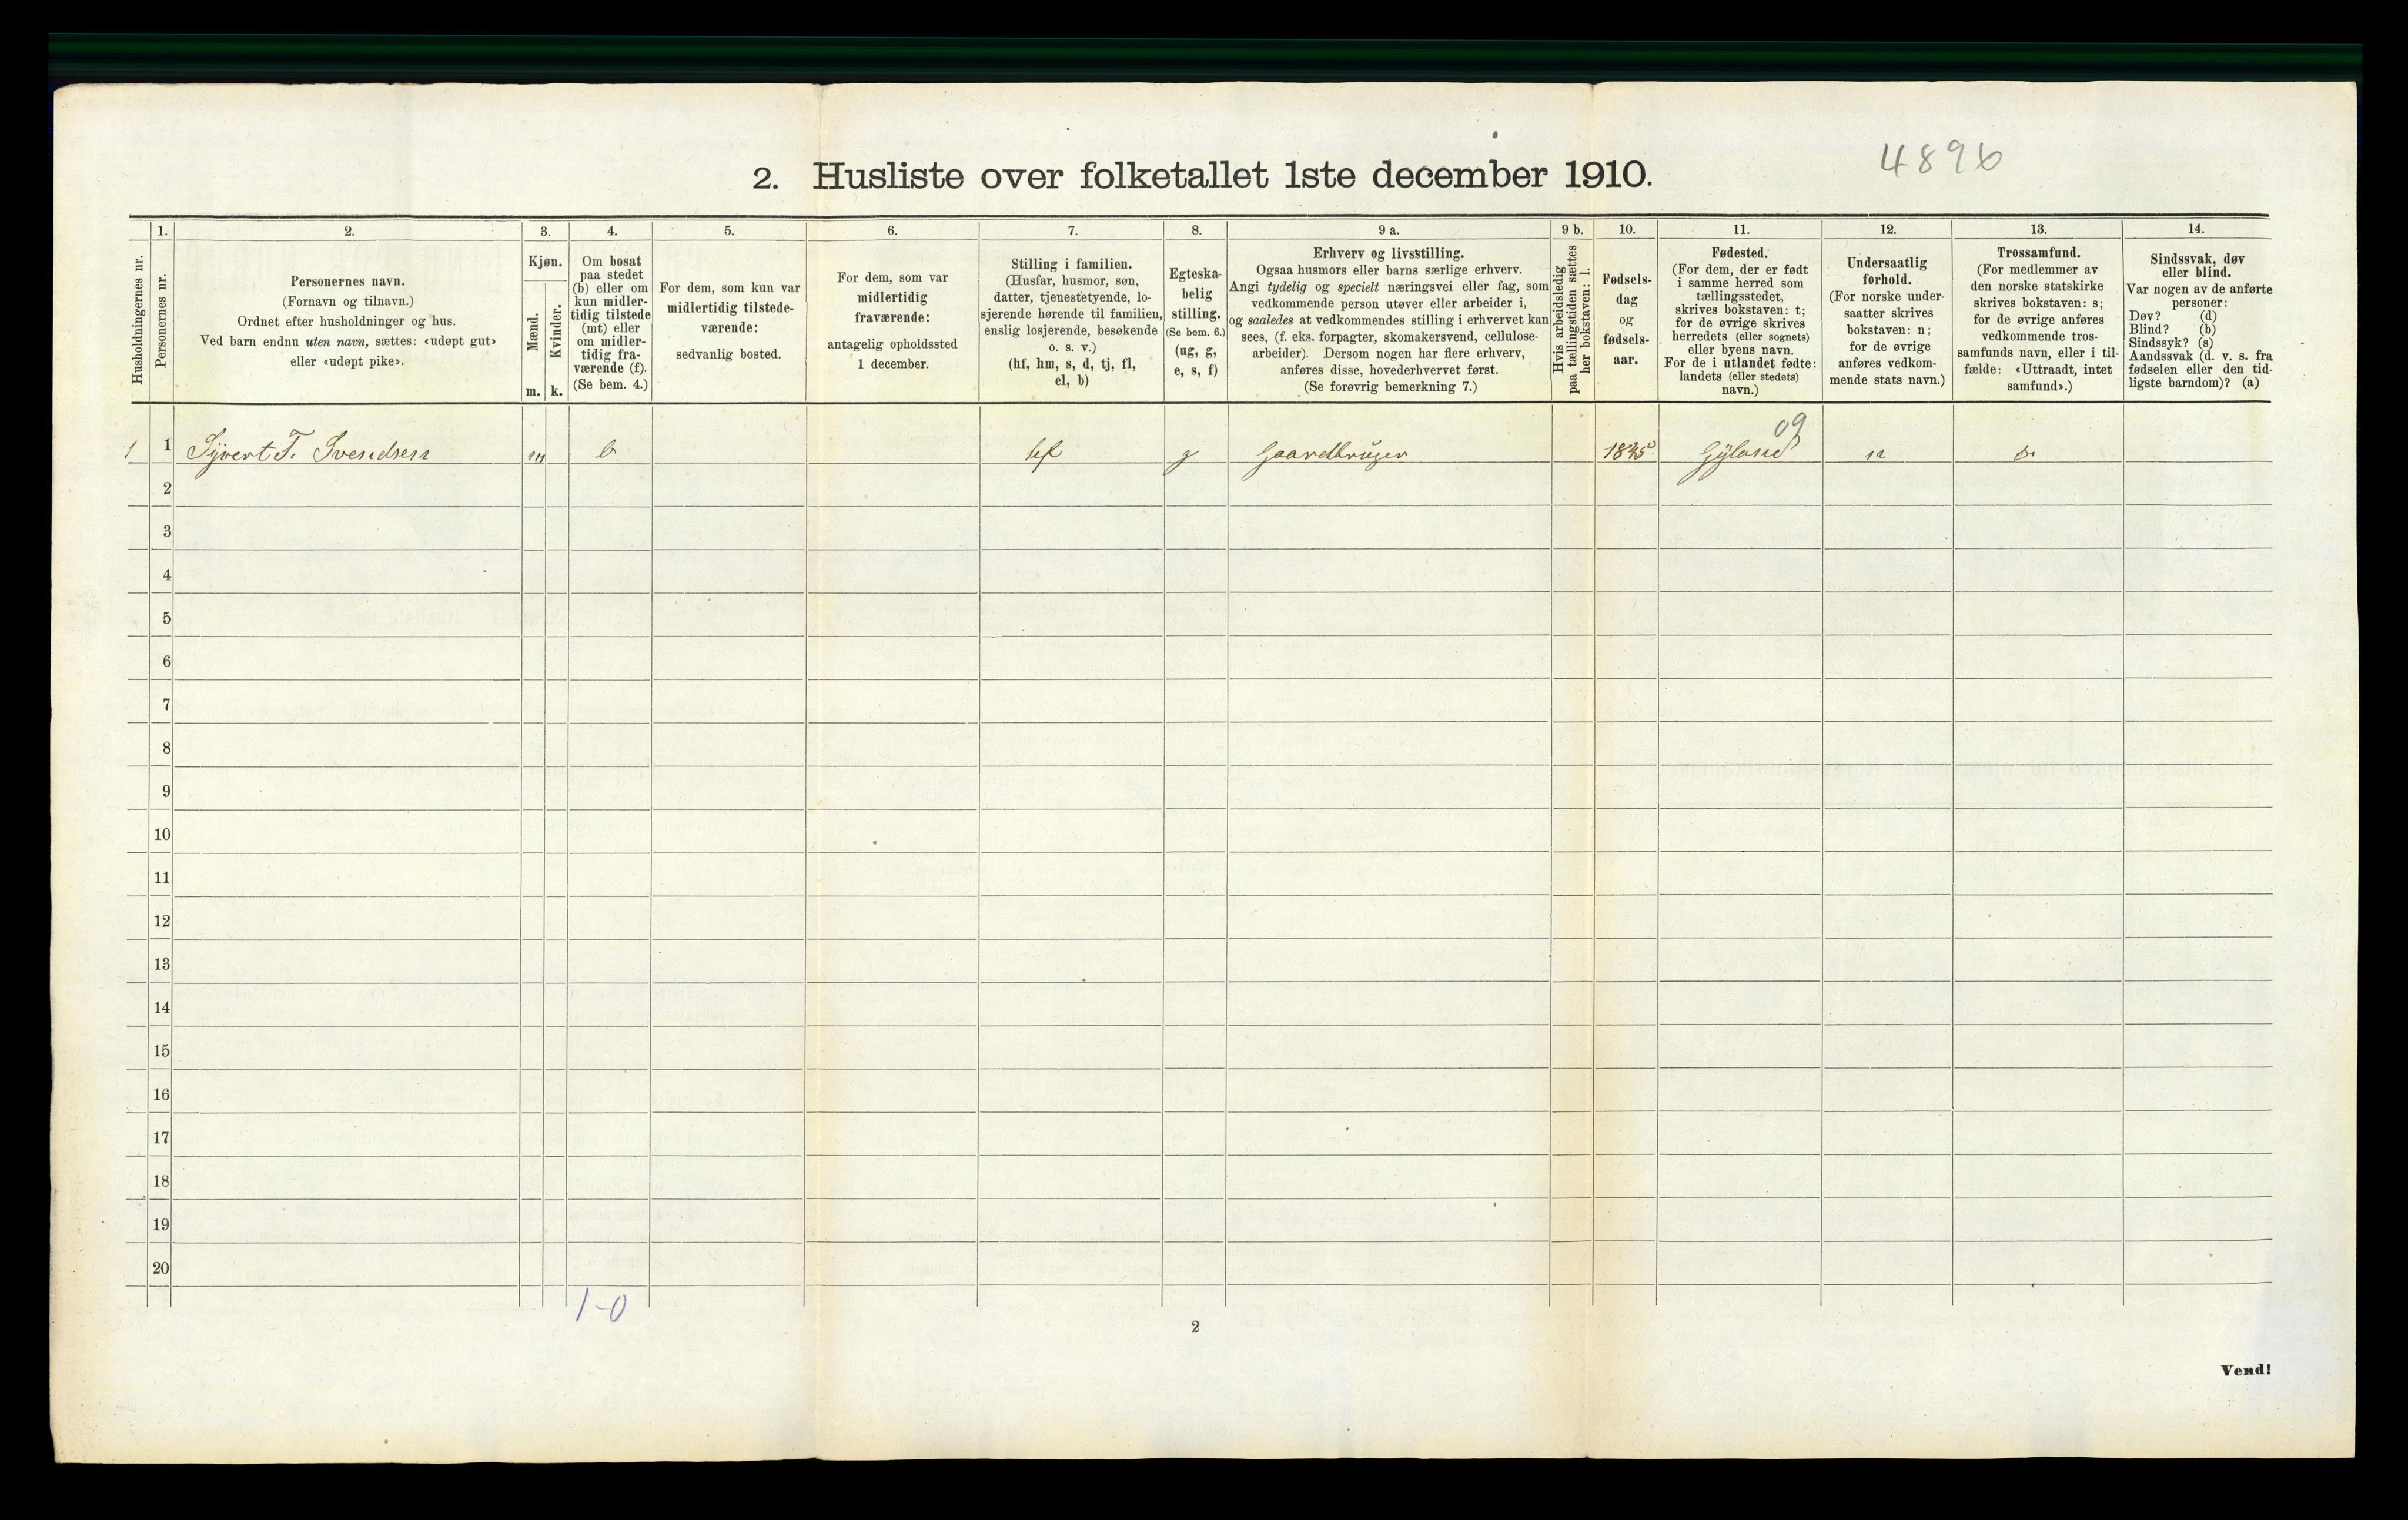 4896
2. Husliste over folketallet 1ste december 1910.
Husholdningernes nr.
1.
Personernes nr.
2.
Personernes navn.
(Fornavn og tilnavn.)
Ordnet efter husholdninger og hus.
Ved barn endnu uten navn, sættes: «udøpt gut»
eller «udøpt pike».
3.
Kjøn.
Mænd.
Kvinder.
m. k.
4.
Om bosat
paa stedet
(b) eller om
kun midler-
tidig tilstede
(mt) eller
om midler-
tidig fra-
værende (f).
(Se bem. 4.)
5.
For dem, som kun var
midlertidig tilstede-
værende:
sedvanlig bosted.
6.
For dem, som var
midlertidig
fraværende:
antagelig opholdssted
1 december.
7.
Stilling i familien.
(Husfar, husmor, søn,
datter, tjenestetyende, lo-
sjerende hørende til familien,
enslig losjerende, besøkende
o. s. v.)
(hf, hm, s, d, tj, fl,
el, b)
8.
Egteska-
belig
stilling.
(Se bem. 6.)
(ug, g,
e, s, f)
9 a.
Erhverv og livsstilling.
Ogsaa husmors eller barns særlige erhverv.
Angi tydelig og specielt næringsvei eller fag, som
vedkommende person utøver eller arbeider i,
og saaledes at vedkommendes stilling i erhvervet kan
sees, (f. eks. forpagter, skomakersvend, cellulose-
arbeider). Dersom nogen har flere erhverv,
anføres disse, hovederhvervet først.
(Se forøvrig bemerkning 7.)
9 b.
Hvis arbeidsledig
paa tællingstiden sættes
her bokstaven: l.
10.
Fødsels-
dag
og
fødsels-
aar.
11.
Fødested.
(For dem, der er født
i samme herred som
tællingsstedet,
skrives bokstaven: t;
for de øvrige skrives
herredets (eller sognets)
eller byens navn.
For de i utlandet fødte:
landets (eller stedets)
navn.)
12.
Undersaatlig
forhold.
(For norske under-
saatter skrives
bokstaven: n;
for de øvrige
anføres vedkom-
mende stats navn.)
13.
Trossamfund.
(For medlemmer av
den norske statskirke
skrives bokstaven: s;
for de øvrige anføres
vedkommende tros-
samfunds navn, eller i til-
fælde: «Uttraadt, intet
samfund».)
14.
Sindssvak, døv
eller blind.
Var nogen av de anførte
personer:
Døv? (d)
Blind? (b)
Sindssyk? (s)
Aandssvak (d. v. s. fra
fødselen eller den tid-
ligste barndom)? (a)
09
1 1 Syvert T. Svendsen m b hf g Gaardbruger Gyland n s
2
3
4
5
6
7
8
9
10
11
12
13
14
15
16
17
18
19
20
1-0
2
Vend!